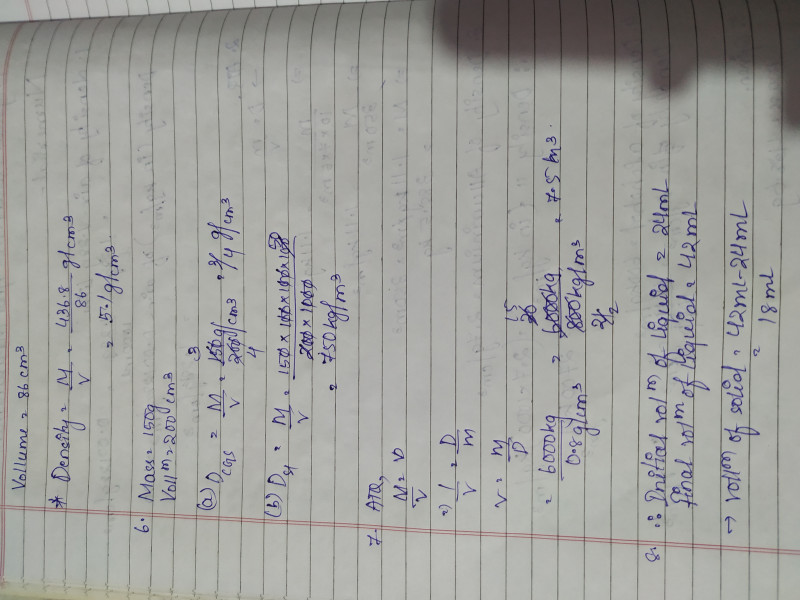 Vollume = 86 cm3
* Density = M/V = 436.8/86 g/cm3
= 5.1 g/cm3.
6. Mass = 150g
Vollm = 200 cm3
(a) D CGS = M/V = 150g/200/cm3 = 3/4 g/cm3
(b) D SI = M/V = 150 × 100 × 100 × 100/200 × 1000
= 750 kg/m3
7. ATQ,
M/V = D
=) 1/V = D/m
V = M/D
= 6000kg/0.8g/cm3 = 6000kg/800kg/m3 = 7.5 m3.
8. ∴ Initial volm of liquid = 24mL
final volm of liquid = 42mL
→ vollm of solid = 42mL-24mL
= 18mL